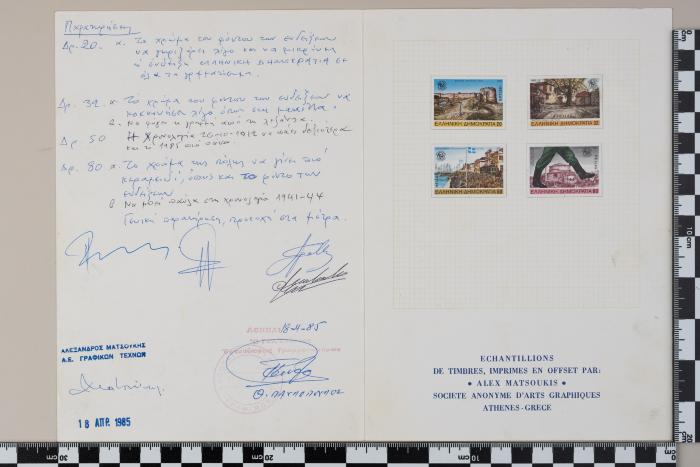 Παρατηρήσεις
Δρ. 20. α. Το χρώμα του φόντου των ενδείξεων
να γκριζάρει λίγο και να μικρύνη
η ένδειξη ΕΛΛΗΝΙΚΗ ΔΗΜΟΚΡΑΤΙΑ σε
όλα τα γραμματόσημα.
Δρ. 32 α. Το χρώμα του φόντου των ενδείξεων να
κοκκινήση λίγο όπως στη μακέττα.
β. Να φύγη η γραμμή από τη λεζάντα.
Δρ 50 Η χρονολογία 26-10-1912 να πάει δεξιότερα
και το 1185 από πάνω.
Δρ. 80 α. Το χρώμα της πόλης να γίνει πιό
κεραμειδί, όπως και το φόντο των
ενδείξεων
β Να μπεί παύλα στη χρονολογία 1941-44
Γενική παρατήρηση, προσοχή στα μέτρα.
18-4-85
Θ. ΠΑΥΛΟΠΟΥΛΟΣ
ΑΛΕΞΑΝΔΡΟΣ ΜΑΤΣΟΥΚΗΣ
Α.Ε. ΓΡΑΦΙΚΩΝ ΤΕΧΝΩΝ
18 ΑΠΡ. 1985
ΕΛΛΗΝΙΚΗ ΔΗΜΟΚΡΑΤΙΑ 20
ΕΛΛΗΝΙΚΗ ΔΗΜΟΚΡΑΤΙΑ 32
ΕΛΛΗΝΙΚΗ ΔΗΜΟΚΡΑΤΙΑ
ΕΛΛΗΝΙΚΗ ΔΗΜΟΚΡΑΤΙΑ
ECHANTILLIONS
DE TIMBRES, IMPRIMES EN OFFSET PAR:
• ALEX MATSOUKIS •
SOCIETE ANONYME D'ARTS GRAPHIQUES
ATHENES-GRECE
10
20
30 cm
10
20